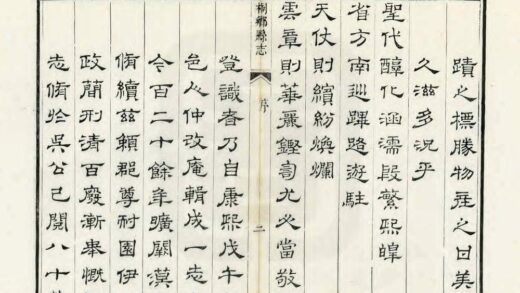 蹟之標勝物產之日美
久滋多況乎
聖代醲化涵濡殷繁熙皞
省方南巡蹕路遊駐
天仗則繽紛煥爛
雲章則華麗鏗訇尤必當敬
桐鄉縣志
序
二
登識者乃自康熙戊午
邑人仲改庵輯成一志
今百二十餘年曠闕漠
脩續茲賴郡尊耐圃伊
政簡刑清百廢漸舉慨
志脩於吳公已閱八十